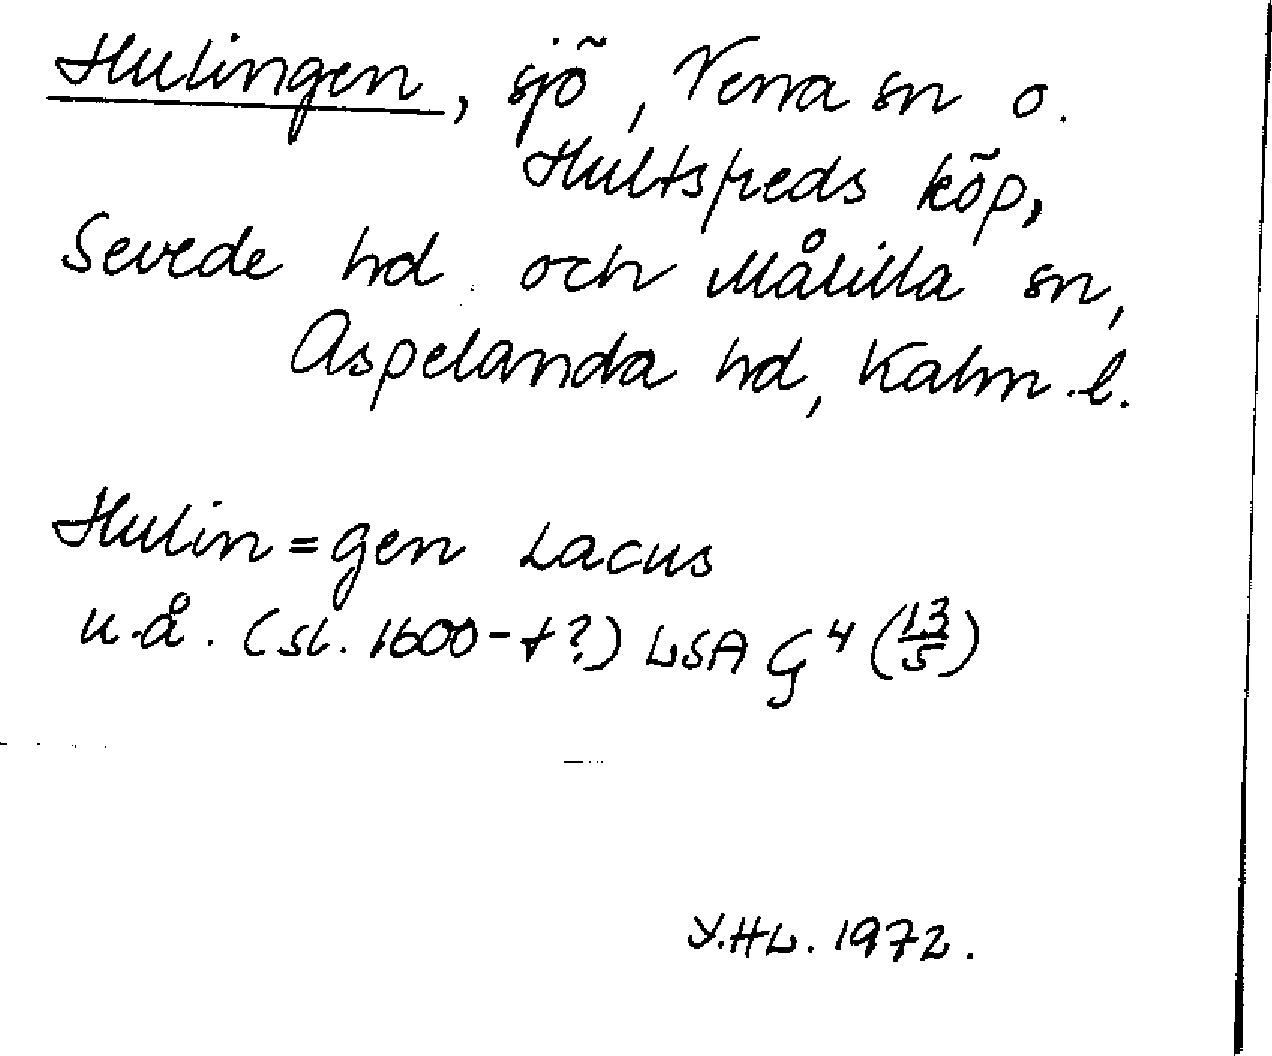 Hulingen, sjö, Vena sn o.
Hultsfreds köp,
Sevede hd och Målilla sn,
Aspelanda hd, Kalm. l.
Hulin=gen Lacus
u.å. (sl. 1600-t?) LSA G4 (13/5)
Y.HL. 1972.